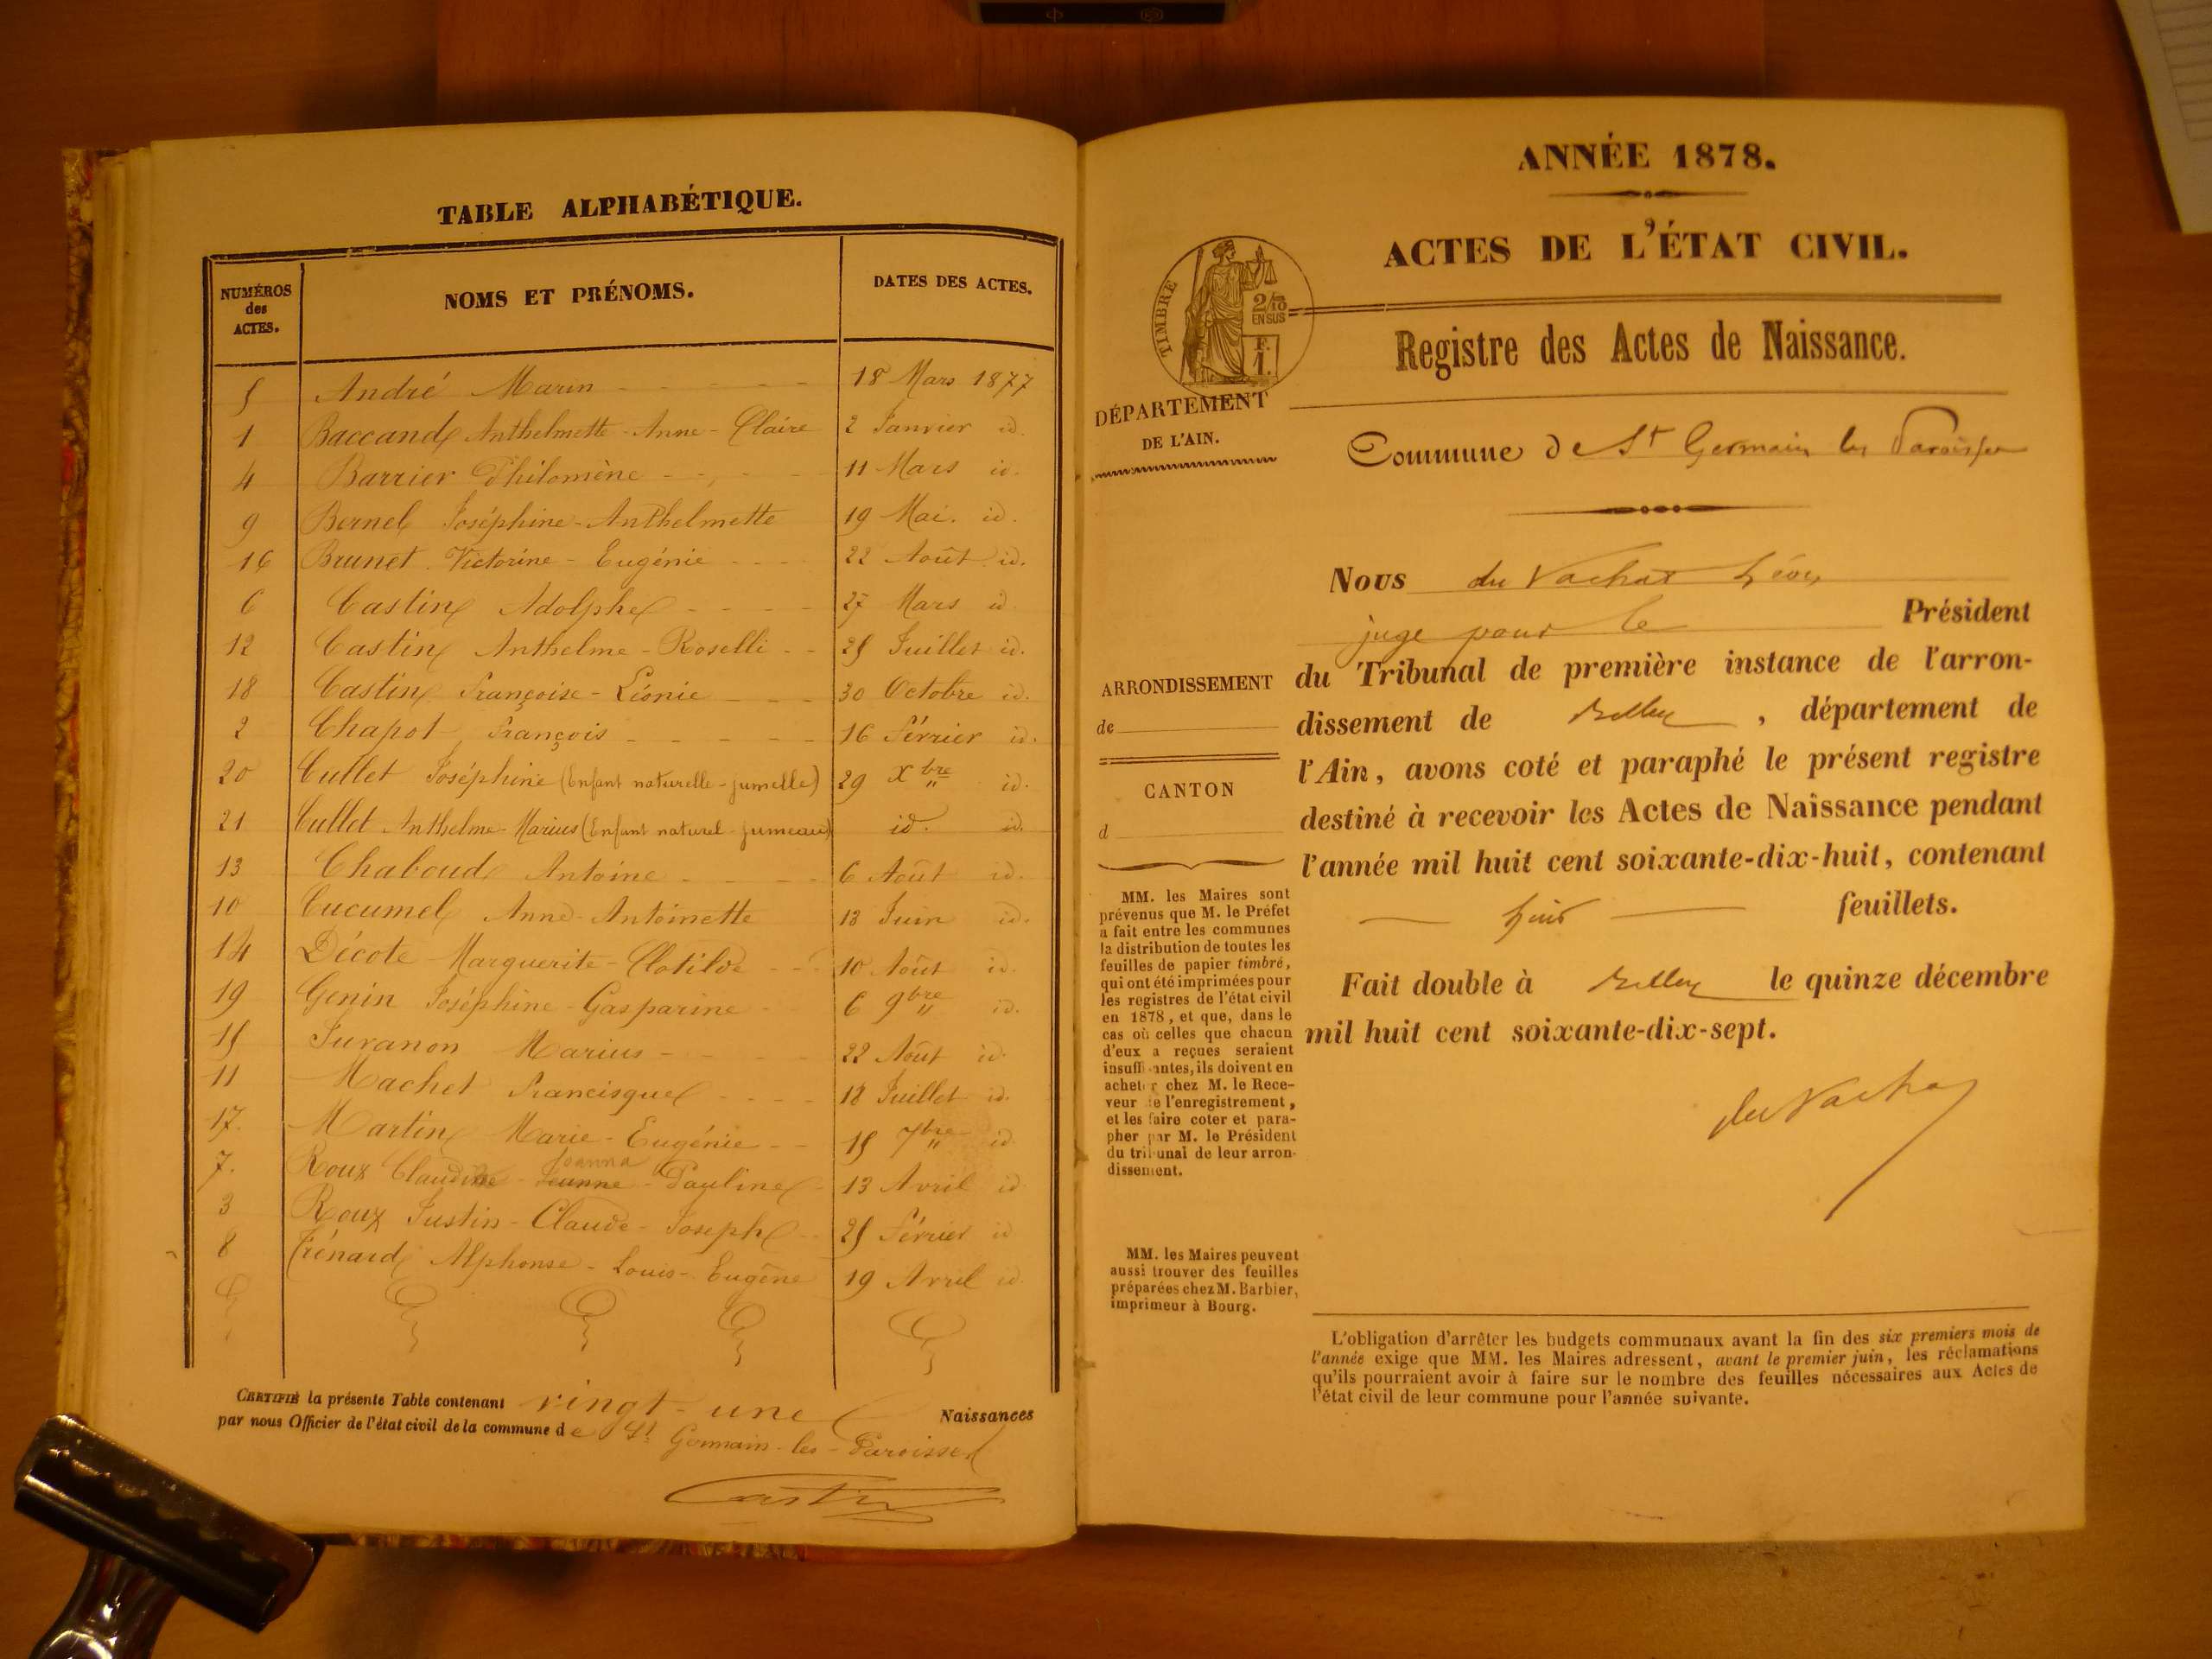 TABLE ALPHABÉTIQUE.
NUMÉROS des ACTES. NOMS ET PRÉNOMS. DATES DES ACTES.
5 André Marin 18 Mars 1877
1 Baccand Anthelmette-Anne-Claire 2 Janvier id.
4 Barrier Philomène 11 Mars id.
9 Bernel Joséphine-Anthelmette 19 Mai. id.
16 Brunet Victorine-Eugénie 22 Août id.
6 Castin Adolphe 27 Mars id
12 Castin Anthelme-Roselli 25 Juillet id.
18 Castin Françoise-Léonie 30 Octobre id.
2 Chapot François 16 Février id.
20 Cullet Joséphine (Enfant naturelle-jumelle) 29 Xbre id.
21 Cullet Anthelme-Marius (Enfant naturel jumeau) id. id.
13 Chaboud Antoine 6 Août id.
10 Cucumel Anne-Antoinette 13 Juin id.
14 Décote Marguerite-Clotilde 10 Août id.
19 Genin Joséphine-Gasparine 6 9bre id.
15 Juvanon Marius 22 Août id.
11 Machet Francisque 18 Juillet id.
17. Martin Marie-Eugénie 15 7bre id
7. Roux Claudine-Jeanne Joanna-Pauline 13 Avril id
3 Roux Justin-Claude-Joseph 25 Février id
8 Trénard Alphonse-Louis-Eugène 19 Avril id
CERTIFIÉ la présente Table contenant vingt-une Naissances
par nous Officier de l'état civil de la commune de St Germain-les-Paroisses
Castin
ANNÉE 1878.
ACTES DE L'ÉTAT CIVIL.
TIMBRE
2/10
EN SUS
F.
1.
Registre des Actes de Naissance.
DÉPARTEMENT
DE L'AIN.
Commune de St Germain les Paroisses
Nous du Vachat Léon
juge pour le Président
ARRONDISSEMENT
de
CANTON
d
du Tribunal de première instance de l'arron-
dissement de Belley, département de
l'Ain, avons coté et paraphé le présent registre
destiné à recevoir les Actes de Naissance pendant
l'année mil huit cent soixante-dix-huit, contenant
huit feuillets.
Fait double à Belley le quinze décembre
mil huit cent soixante-dix-sept.
du Vachat
MM. les Maires sont
prévenus que M. le Préfet
a fait entre les communes
la distribution de toutes les
feuilles de papier timbré,
qui ont été imprimées pour
les registres de l'état civil
en 1878, et que, dans le
cas où celles que chacun
d'eux a reçues seraient
insuffisantes, ils doivent en
acheter chez M. le Rece-
veur de l'enregistrement,
et les faire coter et para-
pher par M. le Président
du tribunal de leur arron-
dissement.
MM. les Maires peuvent
aussi trouver des feuilles
préparées chez M. Barbier,
imprimeur à Bourg.
L'obligation d'arrêter les budgets communaux avant la fin des six premiers mois de
l'année exige que MM. les Maires adressent, avant le premier juin, les réclamations
qu'ils pourraient avoir à faire sur le nombre des feuilles nécessaires aux Actes de
l'état civil de leur commune pour l'année suivante.